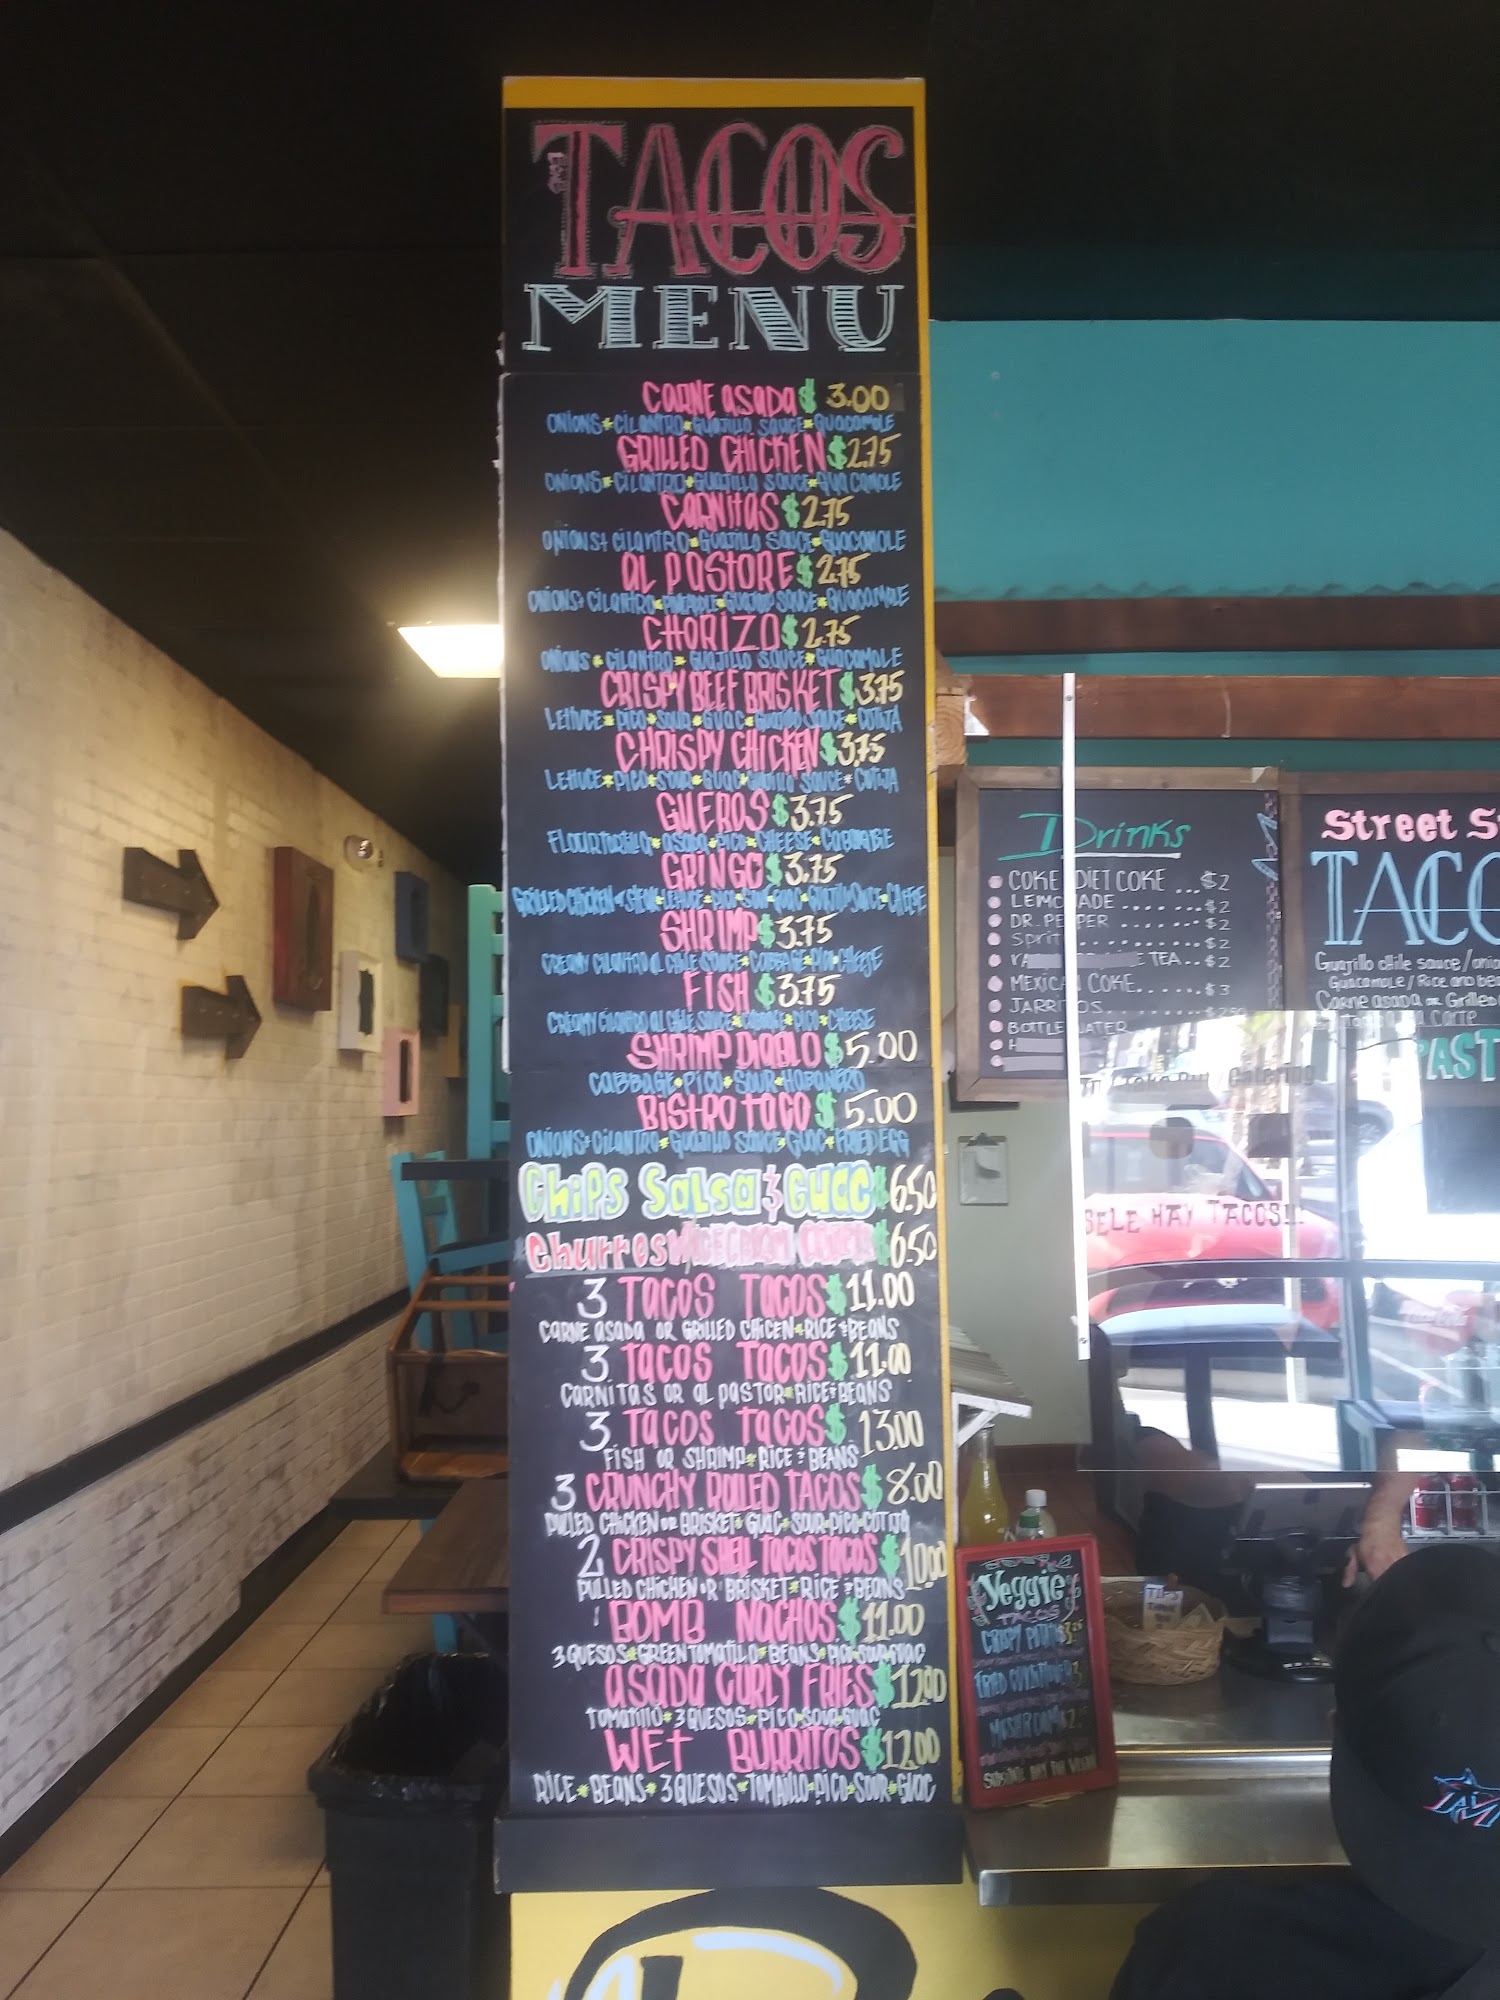 THE
TACOS
MENU
CARNE ASADA $ 3.00
ONIONS * CILANTRO * GUAJILLO SAUCE * GUACAMOLE
GRILLED CHICKEN $ 2.75
ONIONS * CILANTRO * GUAJILLO SAUCE * GUACAMOLE
CARNITAS $ 2.75
ONIONS * CILANTRO * GUAJILLO SAUCE * GUACAMOLE
AL PASTORE $ 2.75
ONIONS * CILANTRO * PINEAPPLE * GUAJILLO SAUCE * GUACAMOLE
CHORIZO $ 2.75
ONIONS * CILANTRO * GUAJILLO SAUCE * GUACAMOLE
CRISPY BEEF BRISKET $ 3.75
LETTUCE * PICO * SOUR * GUAC * GUAJILLO SAUCE * COTIJA
CHRISPY CHICKEN $ 3.75
LETTUCE * PICO * SOUR * GUAC * GUAJILLO SAUCE * COTIJA
GUEROS $ 3.75
FLOUR TORTILLA * ASADA * PICO * CHEESE *
GRINGO $ 3.75
GRILLED CHICKEN
SHRIMP $ 3.75
CREAMY CILANTRO AL CHILE SAUCE * CABBAGE * PICO * CHEESE
FISH $ 3.75
CREAMY CILANTRO AL CHILE SAUCE * CABBAGE * PICO * CHEESE
SHRIMP DIABLO $ 5.00
CABBAGE * PICO * SOUR * HABANERO
BISTRO TACO $ 5.00
ONIONS * CILANTRO * GUAJILLO SAUCE * GUAC * FRIED EGG
CHIPS SALSA & GUAC $ 6.50
Churros W/ ICE CREAM $ 6.50
3 TACOS TACOS $ 11.00
CARNE ASADA OR GRILLED CHICEN * RICE & BEANS
3 TACOS TACOS $ 11.00
CARNITAS OR AL PASTOR * RICE & BEANS
3 TACOS TACOS $ 13.00
FISH OR SHRIMP * RICE & BEANS
3 CRUNCHY ROLLED TACOS $ 8.00
PULLED CHICKEN OR BRISKET * GUAC * SOUR * PICO * COTIJA
2 CRISPY SHELL TACOS TACOS $ 10.00
PULLED CHICKEN OR BRISKET * RICE & BEANS
BOMB NACHOS $ 11.00
3 QUESOS * GREEN TOMATILLO * BEANS * PICO * SOUR * GUAC
ASADA CURLY FRIES $ 12.00
TOMATILLO * 3 QUESOS * PICO * SOUR * GUAC
WET BURRITOS $ 12.00
RICE * BEANS * 3 QUESOS * TOMAILLO * PICO * SOUR * GUAC
Drinks
COKE DIET COKE ... $2
LEMONADE ....... $2
DR. PEPPER ...... $2
Sprite ....... $2
TEA .. $2
MEXICAN COKE ...... $3
JARRITOS ....... $2.50
BOTTLE WATER
Street S
TACO
Guajillo chile sauce/onio
Guacamole / Rice and bea
Carne asada or Grilled
la carte
PAST
Catering
SELE HAY TACOS!!
Veggie
TACOS
CRISPY POTATO
FRIED
MUSHROOM
TIPS